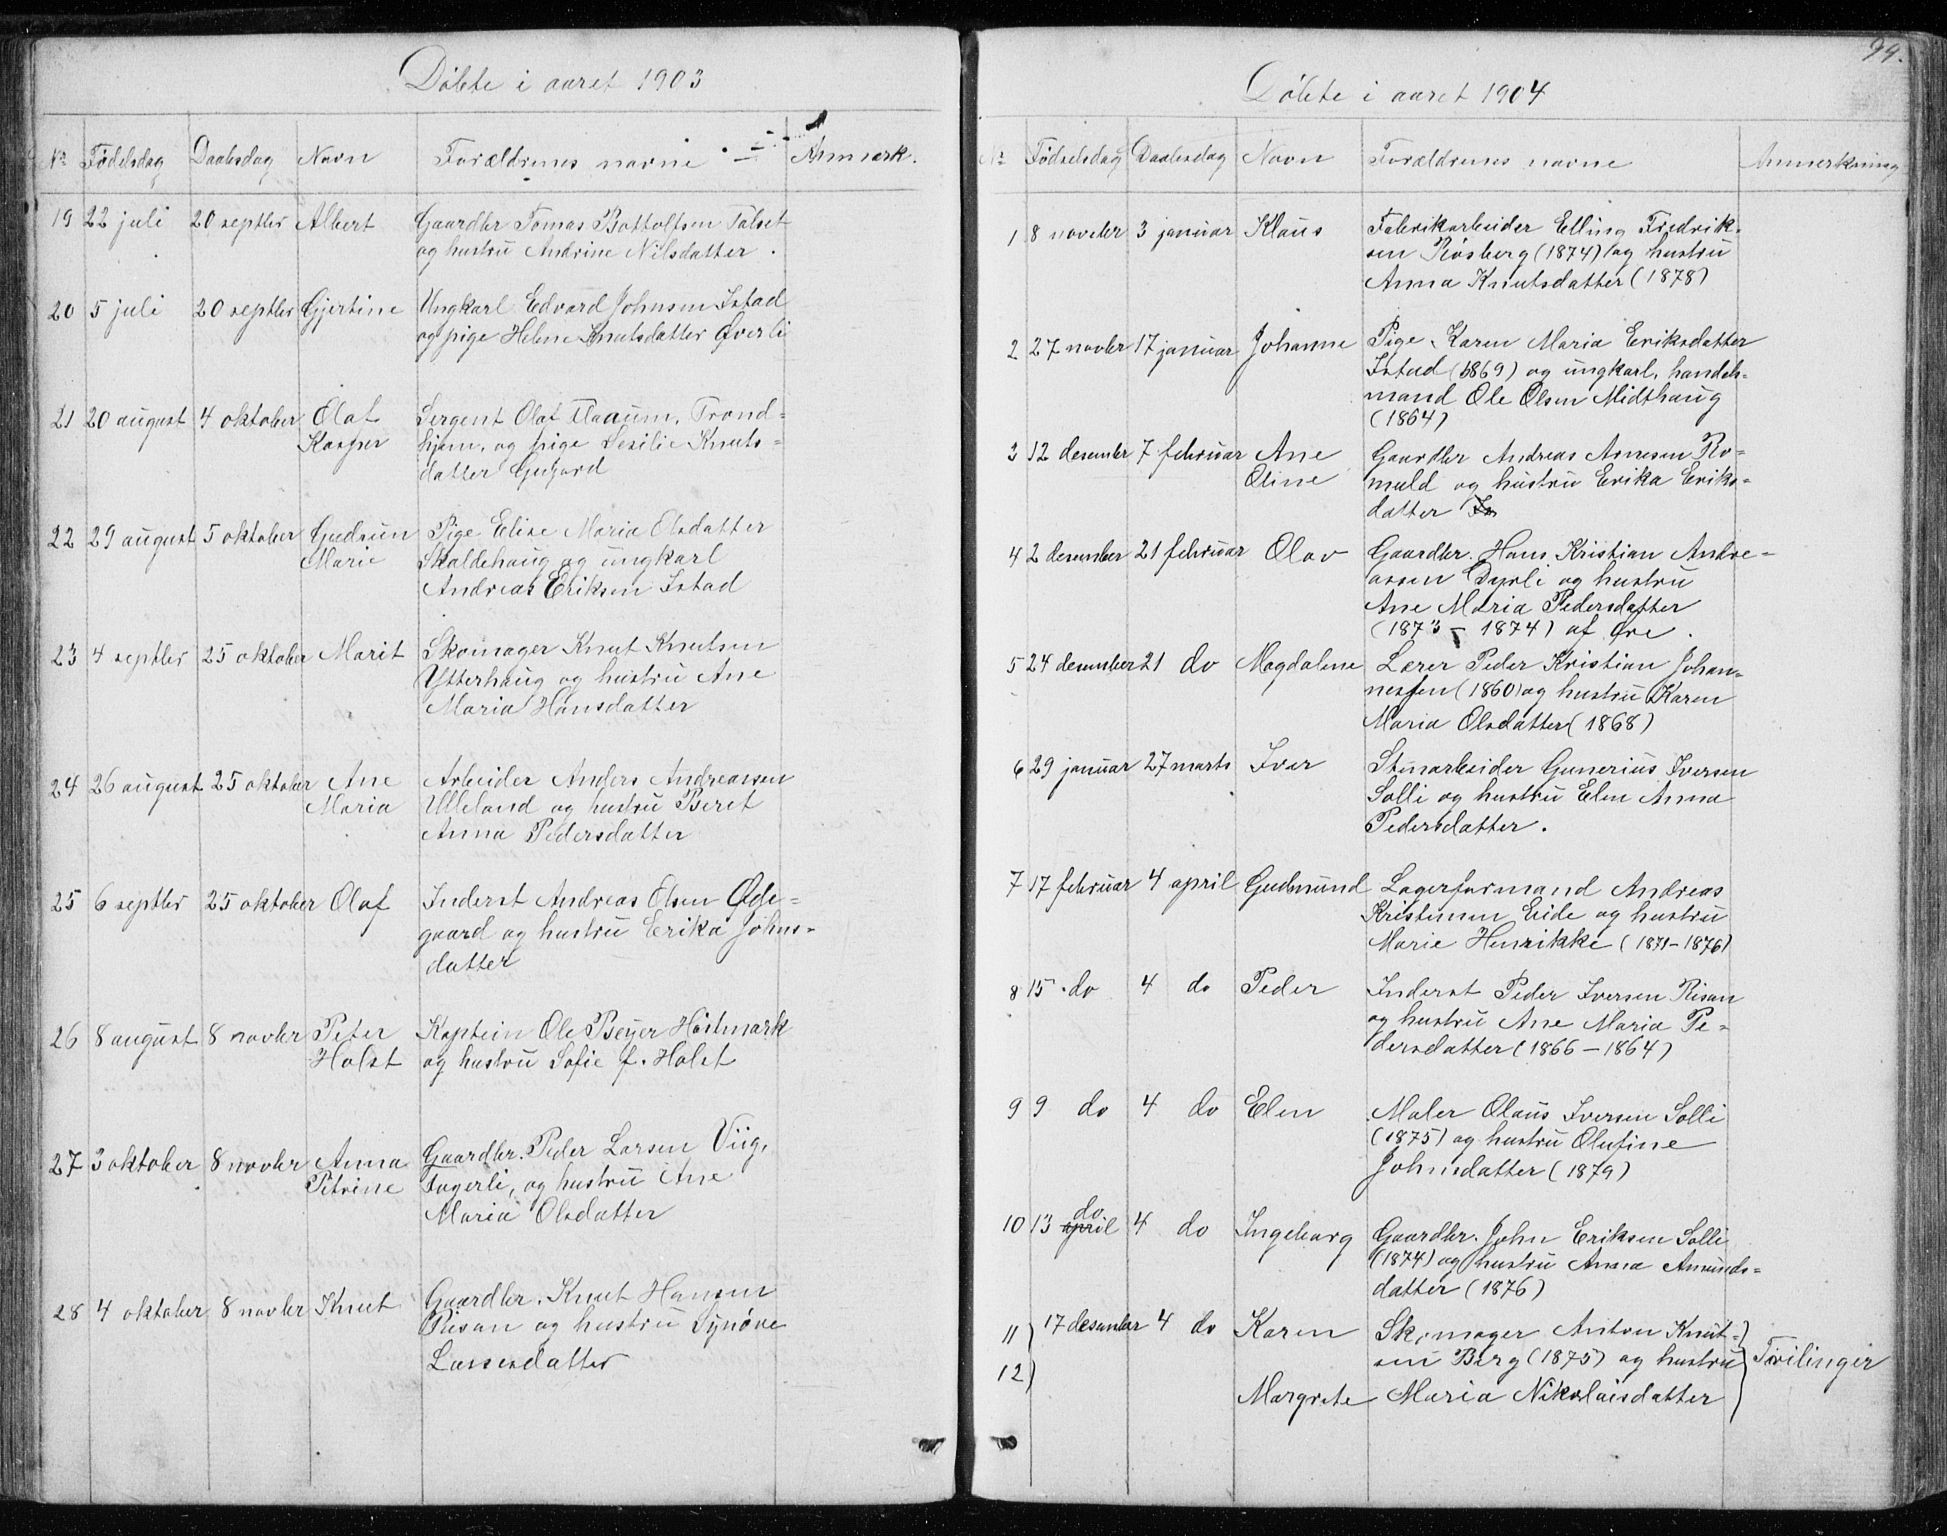 Døbte i aaret 1903
No Fødelsdag Daabsdag Navn Forældrenes navne Anmærk.
19 22 juli 20 septbr Albert Gaardbr Tomas Bottolfsen Talset
og hustru Andrine Nilsdatter.
20 5 juli 20 septbr Gjertine Ungkarl Edvard Johnsen Istad
og pige Helene Knutsdatter Øverli
21 20 august 4 oktober Olaf Sergent Olaf Trond=
Kasper hjem, og pige Sesilie Knuts=
datter
22 29 august 5 oktober Gudrun Pige Elise Maria Olsdatter
Marie Skaldehaug og ungkarl
Andreas Eriksen Istad
23 4 septbr 25 oktober Marit Skomager Knut Knutsen
Ytterhaug og hustru Ane
Maria Hansdatter
24 26 august 25 oktober Ane Arbeider Anders Andreassen
Maria Ulleland og hustru Beret
Anna Pedersdatter
25 6 septbr 25 oktober Olaf Inderst Andreas Olsen Øde=
gaard og hustru Erika Johns=
datter
26 8 august 8 novbr Peter Kaptein Ole Beyer Høstmark
Holst og hustru Sofie f. Holst
27 3 oktober 8 novbr Anna Gaardbr. Peder Larsen Viig,
Petrine Fagerli, og hustru Ane
Maria Olsdatter
28 4 oktober 8 novbr Knut Gaardbr. Knut Hansen
Risan og hustru Synøve
Lassesdatter
94.
Døbte i aaret 1904
No Fødselsdag Daabsdag Navn Forældrenes navne Anmerkning
1 8 november 3 januar Klaus Fabrikarbeider Elling Fredrik=
sen Røsberg (1874) og hustru
Anna Knutsdatter (1878)
2 27 novbr 17 januar Johanne Pige Karen Maria Eriksdatter
Istad (1869) og ungkarl, handels=
mand Ole Olsen Midthaug
(1864)
3 12 desember 7 februar Ane Gaardbr Andreas Arnesen Ro=
Oline muld og hustru Erika Eriks=
datter
4 2 desember 21 februar Olav Gaardbr. Hans Kristian Andre=
assen Dyrli og hustru
Ane Maria Pedersdatter
(1873 - 1874) af Øre.
5 24 desember 21 do Magdalene Lærer Peder Kristian Johan=
nessen (1860) og hustru Karen
Maria Olsdatter (1868)
6 29 januar 27 marts Ivar Stenarbeider Gunerius Iversen
Solli og hustru Elen Anna
Pedersdatter.
7 17 februar 4 april Gudmund Lagerformand Andreas
Kristensen Eide og hustru
Marie Henrikke (1871-1876)
8 15 do 4 do Peder Inderst Peder Iversen Risan
og hustru Ane Maria Pe=
dersdatter (1866-1864)
9 9 do 4 do Elen Maler Olaus Iversen Solli
(1875) og hustru Olufine
Johnsdatter (1879)
do
10 13 april 4 do Ingeborg Gaardbr. John Eriksen Solli
(1874) og hustru Anna Amunds=
datter (1876)
11 17 desember 4 do Karen Skomager Anton Knut=
12 sen Berg (1875) og hustru Tvilinger
Margrete Maria Nikolaisdatter